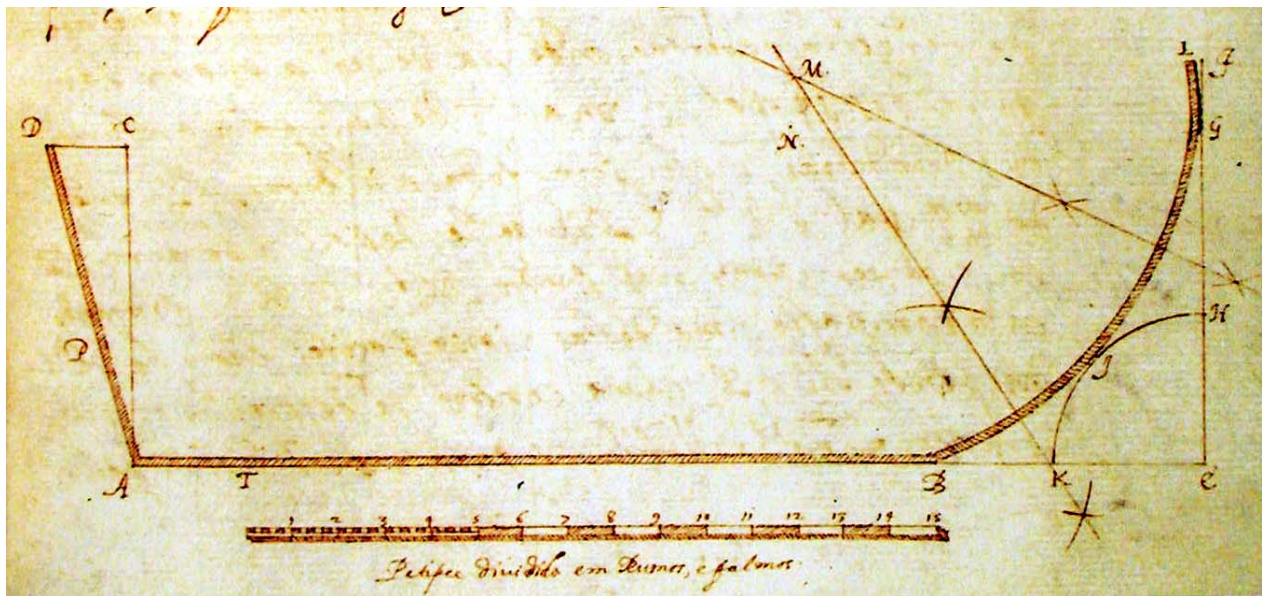 L F
M
D C
G
N
H
P
I
A T B K E
1 2 3 4 5 6 7 8 9 10 11 12 13 14 15
Petipee dividido em Rumos, e palmos.